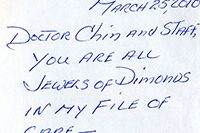 MARCH 25, 2010
DOCTOR CHIN AND STAFF,
YOU ARE ALL
JEWELS OF DIMONDS
IN MY FILE OF
CARE —